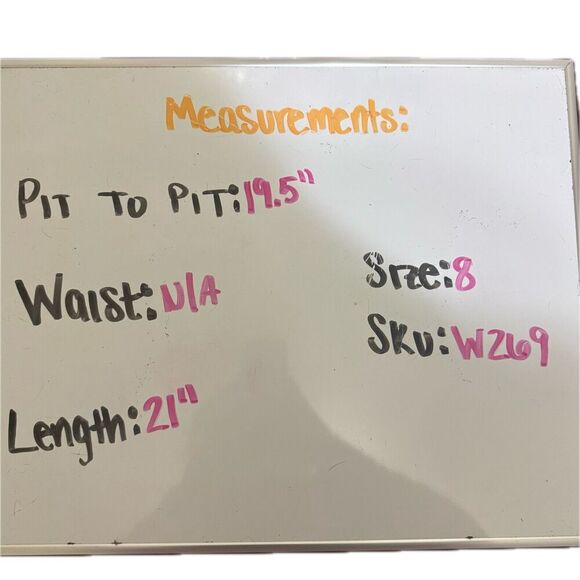 Measurements:
Pit to Pit: 19.5"
Waist: N/A
Size: 8
SKU: W269
Length: 21"